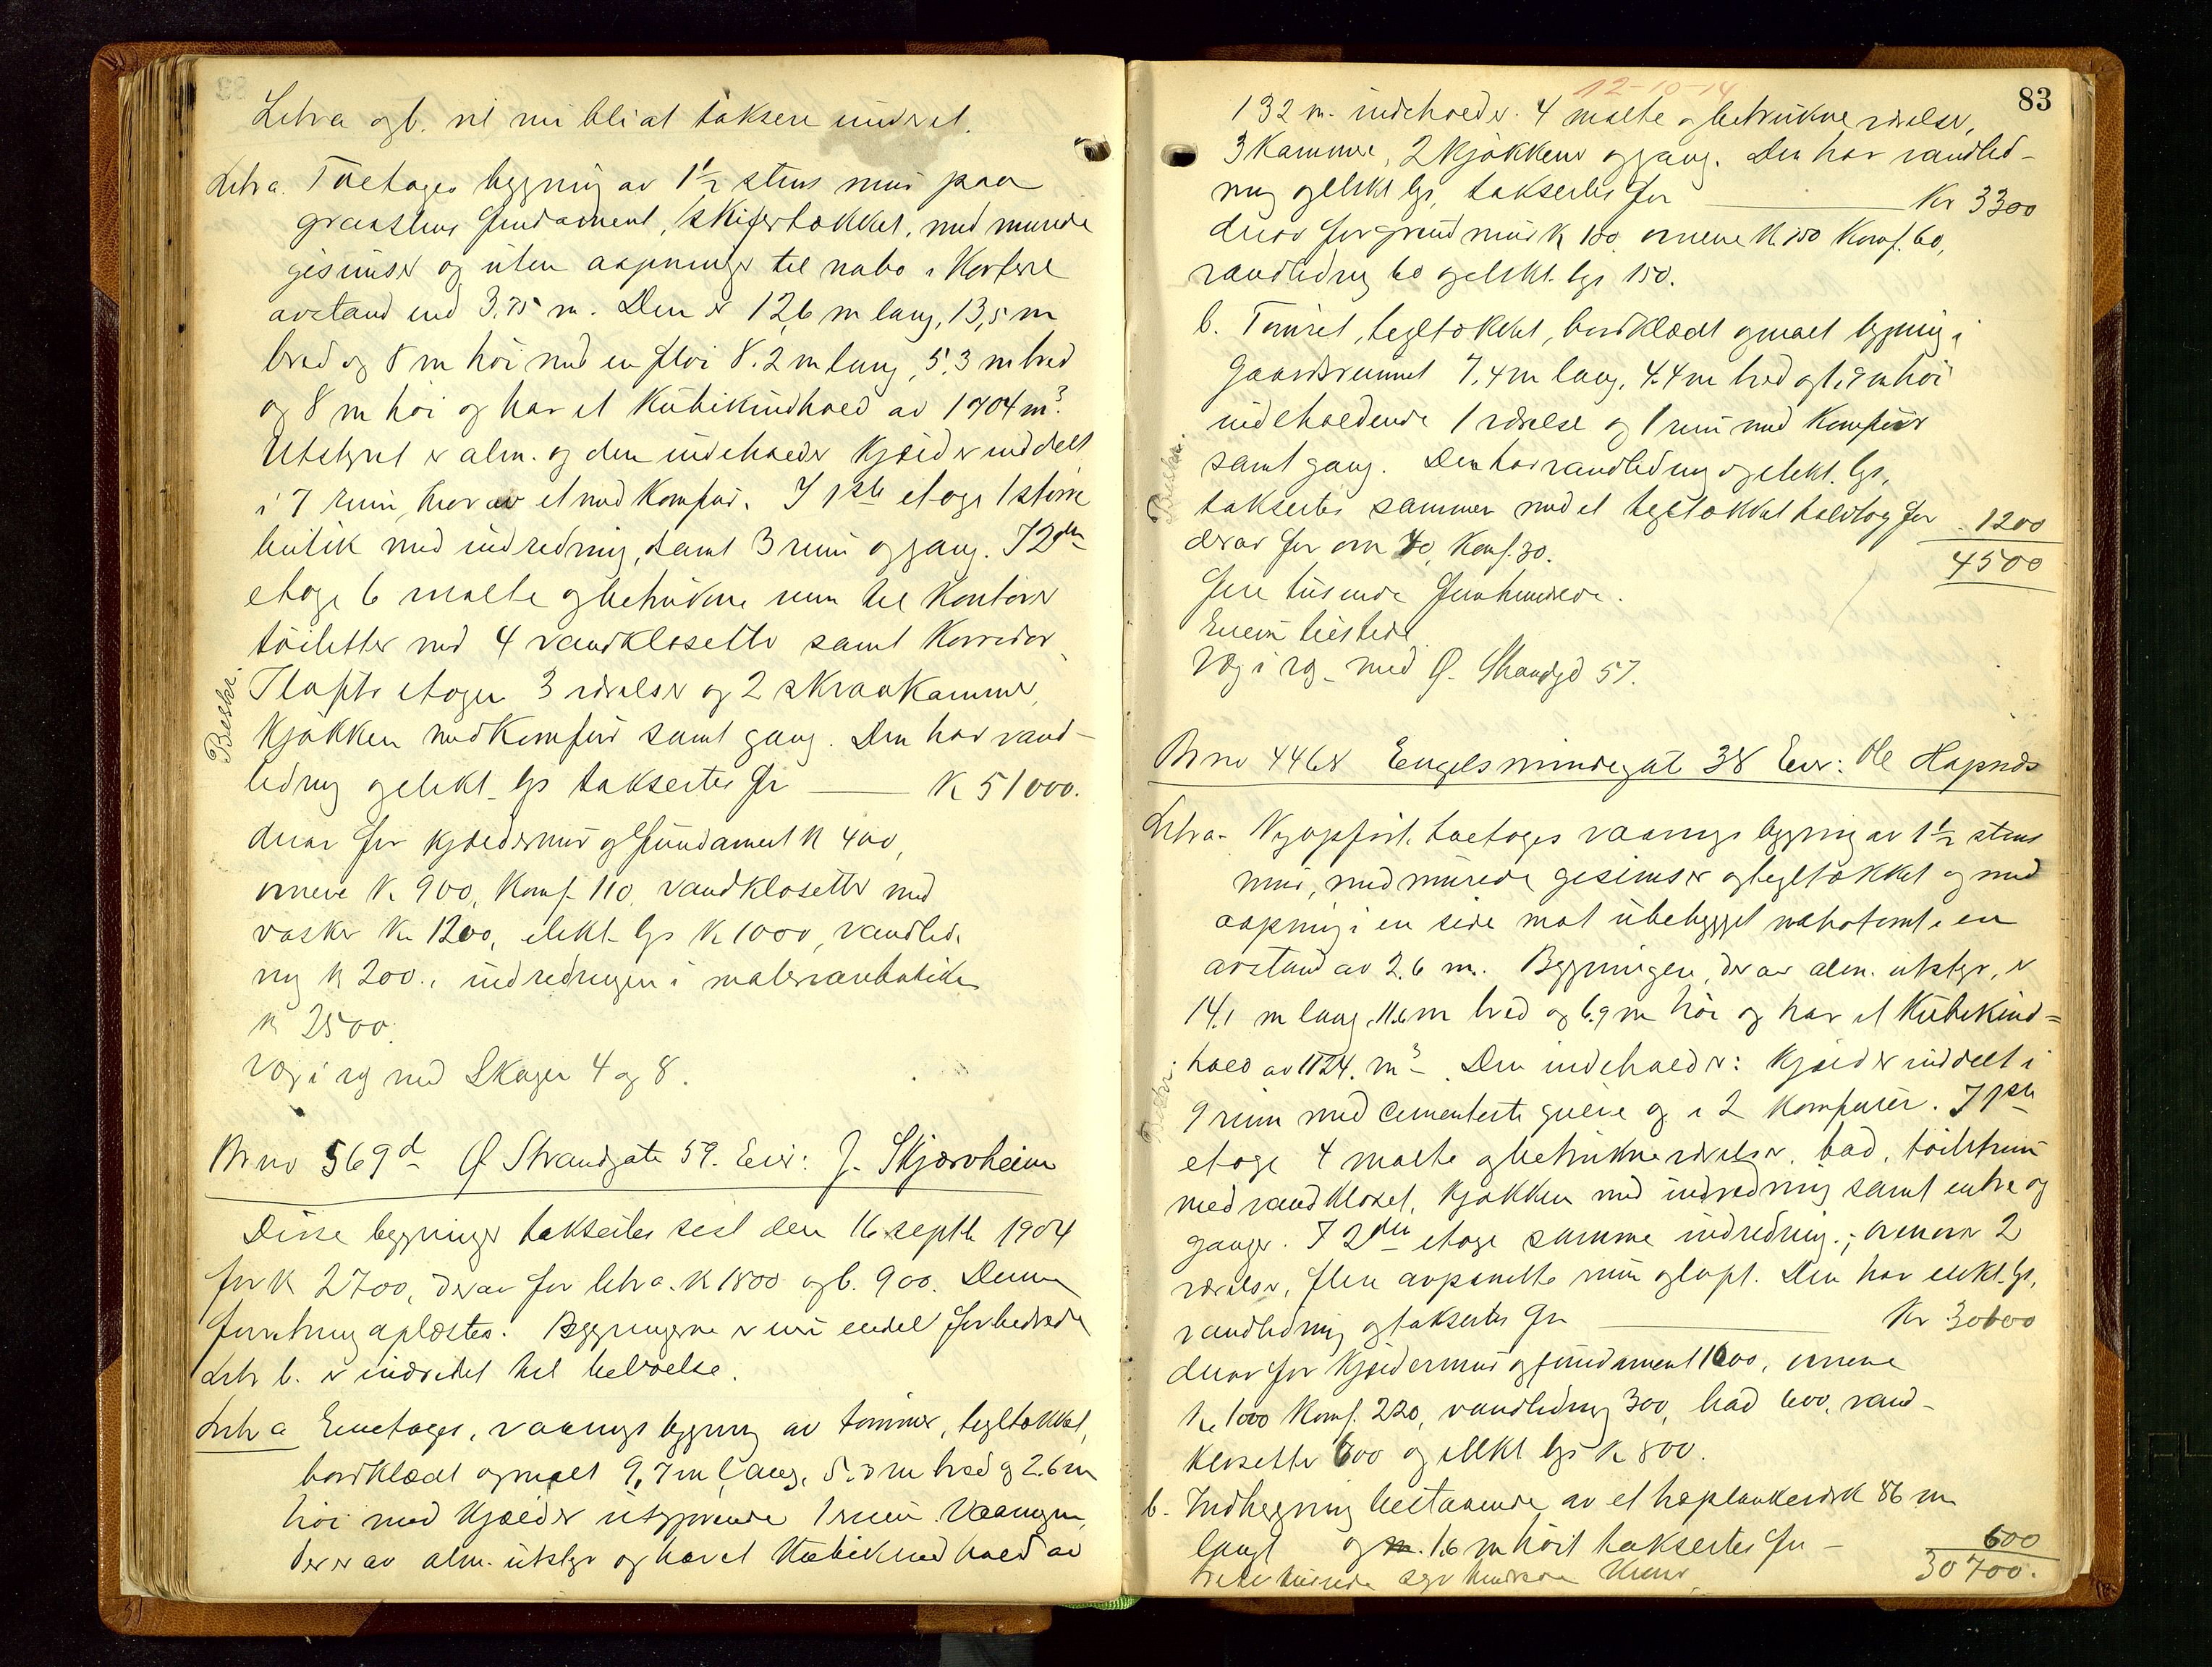 Litra og b. vil nu bli at taksere særskilt.
Litr a. Toetages bygning av 1½ stens mur paa
graastens fundament, skifertækket, med murede
gesimser og uten aapninger til nabo i kortere
avstand end 3.75 m. Den er 12,6 m lang, 13,5 m
bred og 8 m høi med en fløi 8.2 m lang, 5.3 m bred
og 8 m høi og har et kubikindhold av 1704 m³.
Utstyret er alm. og den indeholder kjelder inddelt
i 7 rum, hvorav et med komfur. I 1ste etage 1 større
butik med indredning, samt 3 rum og gang. I 2den
etage 6 malte og betrukne rum til kontorer
toiletter med 4 vandklosetter samt korridor,
I lofts etagen 3 værelser og 2 skraakammer,
kjøkken med komfur samt gang. Den har vand-
ledning og elekt. lys taksertes for Kr 51000.
Beskr.
derav for kjeldermur og fundament K 400,
ovnene K. 900, komf. 110, vandklosetter med
vasker Kr 1200, elekt. lys K 1000, vandled.
ning K 200., indredningen i
K 2500.
Væg i væg med Skagen 4 og 8.
Br no 569d Ø Strandgate 59. Eier: J. Skjærvheim
Disse bygninger taksertes sist den 16 septb 1904
for K 2700, derav for litr a. K 1800 og b. 900. Denne
forretning oplæstes. Bygningerne er nu endel forbedrede
Litr b. er indredet til beboelse.
Litr a Enetages, vaanings bygning av tømmer, tegltækket,
bordklædt og malt 9,7 m lang, 5.3 m bred og 2.6 m
høi med kjelder utgjørende 1 rum. Vaaningen,
der er av alm. utstyr og har et kubikindhold av
83
12-10-14
132 m. indeholder 4 malte og betrukne værelser,
3 Kammer, 2 kjøkkener og gang. Den har vandled-
ning og elekt lys, taksertes for Kr 3300
derav for grundmur K 100 ovnene K 150 Komf. 60,
vandledning 60 og elekt. lys 150.
b. Tømret, tegltækket, bordklædt og malt bygning i
Gaardsrummet 7,4 m lang, 4.4 m bred og høi
indeholdende 1 værelse og 1 rum med komfur
samt gang. Den har vandledning og elekt. lys,
Beskr.
taksertes sammen med et tegltækket halvtag for - 1200
derav for ovn 40, Komf. 30.
4500
Fire tusende femhundrede.
Eieren tilstede
Væg i væg med Ø. Strandgd 57.
Br no 4468 Engelsmindegate 38 Eier: Ole Hapnes
Litr a. Nyopført toetages vaanings bygning av 1½ stens
mur, med murede gesimser og tegltækket og med
aapning i en side mot ubebygget nabotomt i en
avstand av 2.6 m. Bygningen, der er alm. utstyr, er
14.1 m lang, 11.6 m bred og 6.9 m høi og har et kubikind=
hold av 1124. m³ - Den indeholder: Kjelder inddelt i
Beskr.
9 rum med cementerte gulve og i 2 komfurer. I 1ste
etage 4 malte og betrukne værelser, bad, toiletrum
med vandkloset, kjøkken med indredning samt entre og
ganger. I 2den etage samme indredning; ovenover 2
værelser, flere avpanelte rum og loft. Den har elekt. lys,
vandledning og taksertes for Kr 30000
derav for kjeldermur og fundament 1600, ovnene
Kr 1000 Komf. 220, vandledning 300, bad 600, vand-
klosetter 600 og elekt lys K 800.
b. Indhegning bestaaende av et høplankeverk 86 m
langt og 1.6 m høit taksertes for - 600
30700.